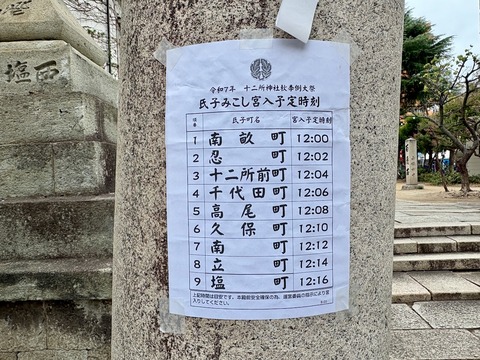 塩西
令和7年　十二所神社秋季例大祭
氏子みこし宮入予定時刻
順番 氏子町名 宮入予定時刻
1 南畝町 12:00
2 忍町 12:02
3 十二所前町 12:04
4 千代田町 12:06
5 高尾町 12:08
6 久保町 12:10
7 南町 12:12
8 立町 12:14
9 塩町 12:16
上記時間は目安です。本殿前安全確保の為、運営委員の指示により宮
入りしてください。